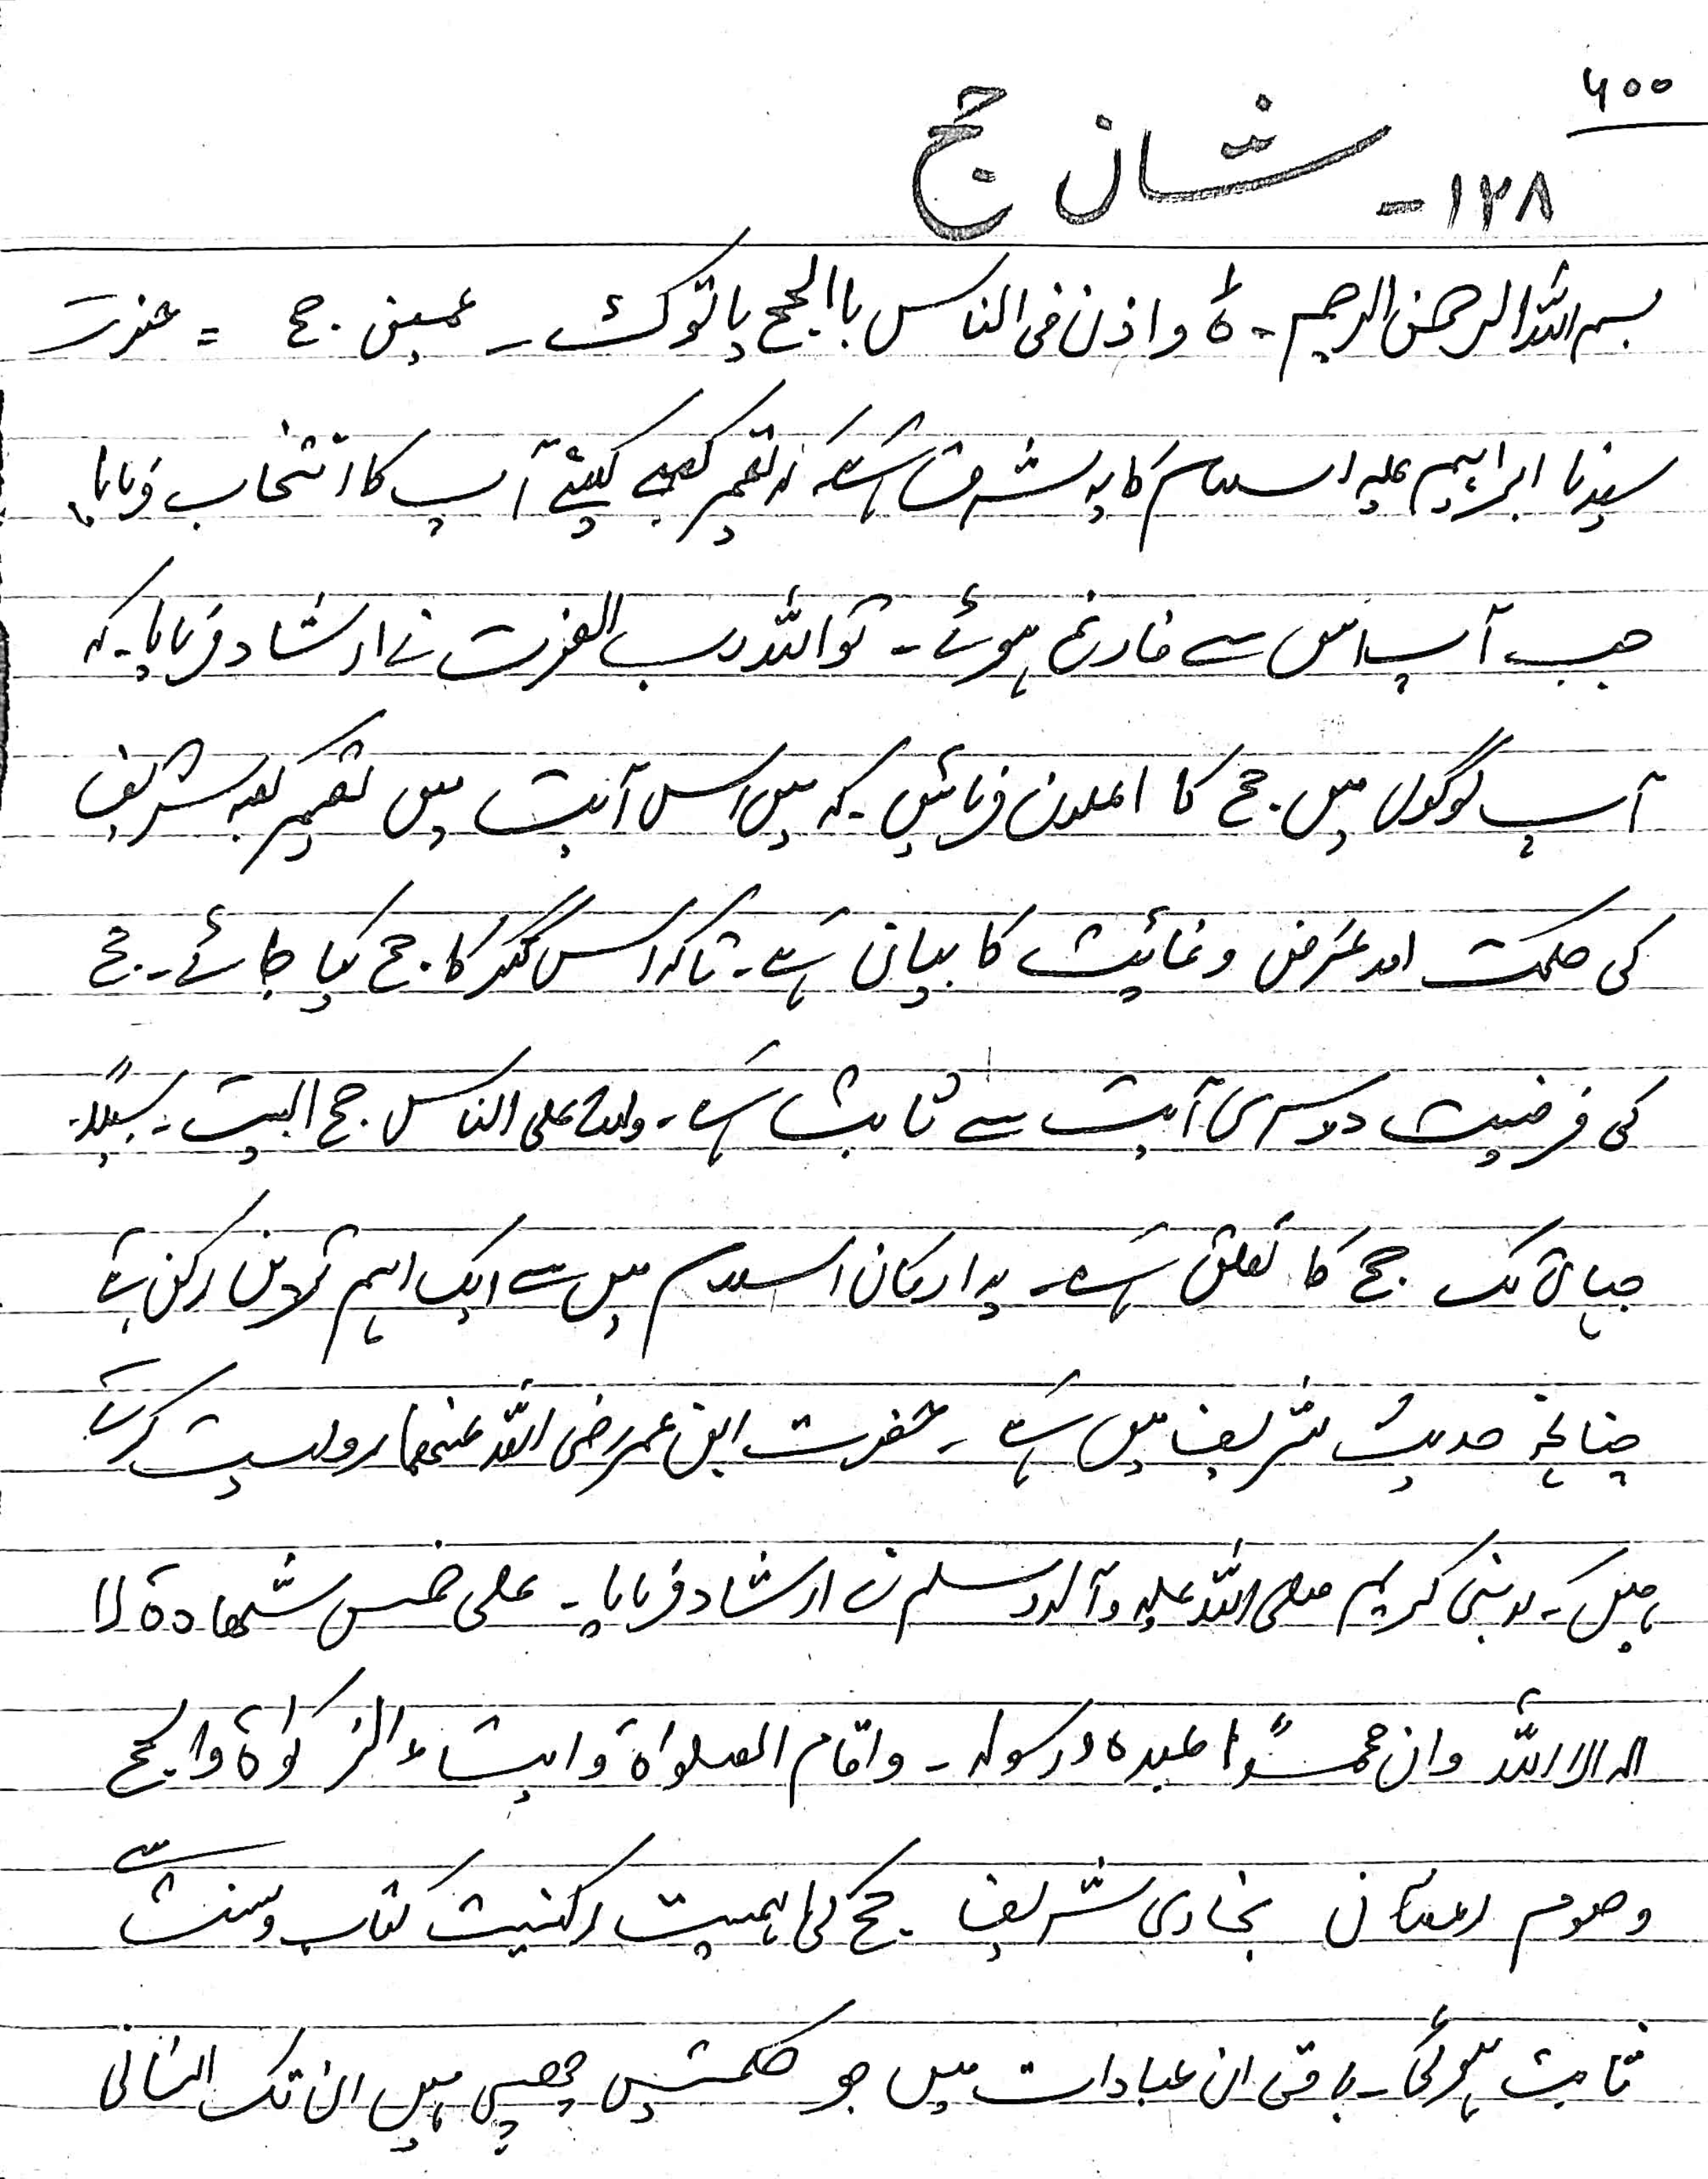 ۶۰۰
۱۲۸- شان حج
بسم اللہ الرحمن الرحیم - ہ واذن فی الناس باالحج یاتوک - عمیق حج = حضرت
سیدنا ابراہیم علیہ اسلام کا یہ شرف ہے کہ تعمیر کعبے کیلئے آپ کا انتخاب فرمایا
جب آپ اس سے فارغ ہوئے - تو اللہ رب العزت نے ارشاد فرمایا - کہ
آپ لوگوں میں حج کا اعلان فرمائیں - کہ میں اس آیت میں تعمیر کعبہ شریف
کی حکمت اور غرض و غائیت کا بیان ہے - تاکہ اس گھر کا حج کیا جائے - حج
کی فرضیت دوسری آیت سے ثابت ہے - وللہ علی الناس حج البیت - سبیلاً
جہاں تک حج کا تعلق ہے - یہ ارکان اسلام میں سے ایک اہم ترین رکن ہے
چنانچہ حدیث شریف میں ہے - حضرت ابن عمر رضی اللہ عنھما روایت کرتے
ہیں کہ نبی کریم صلی اللہ علیہ وآلہ وسلم نے ارشاد فرمایا - علی خمس شھادۃ لا
الہ الا اللہ وان محمداً عبدہ ورسولہ - واقام الصلواۃ وایتاء الزکواۃ والحج
وصوم رمضان بخاری شریف حج کی اہمیت رکنیت کتاب و سنت سے
ثابت ہوگی - باقی ان عبادات میں جو حکمتیں چھپی ہیں ان تک انسانی